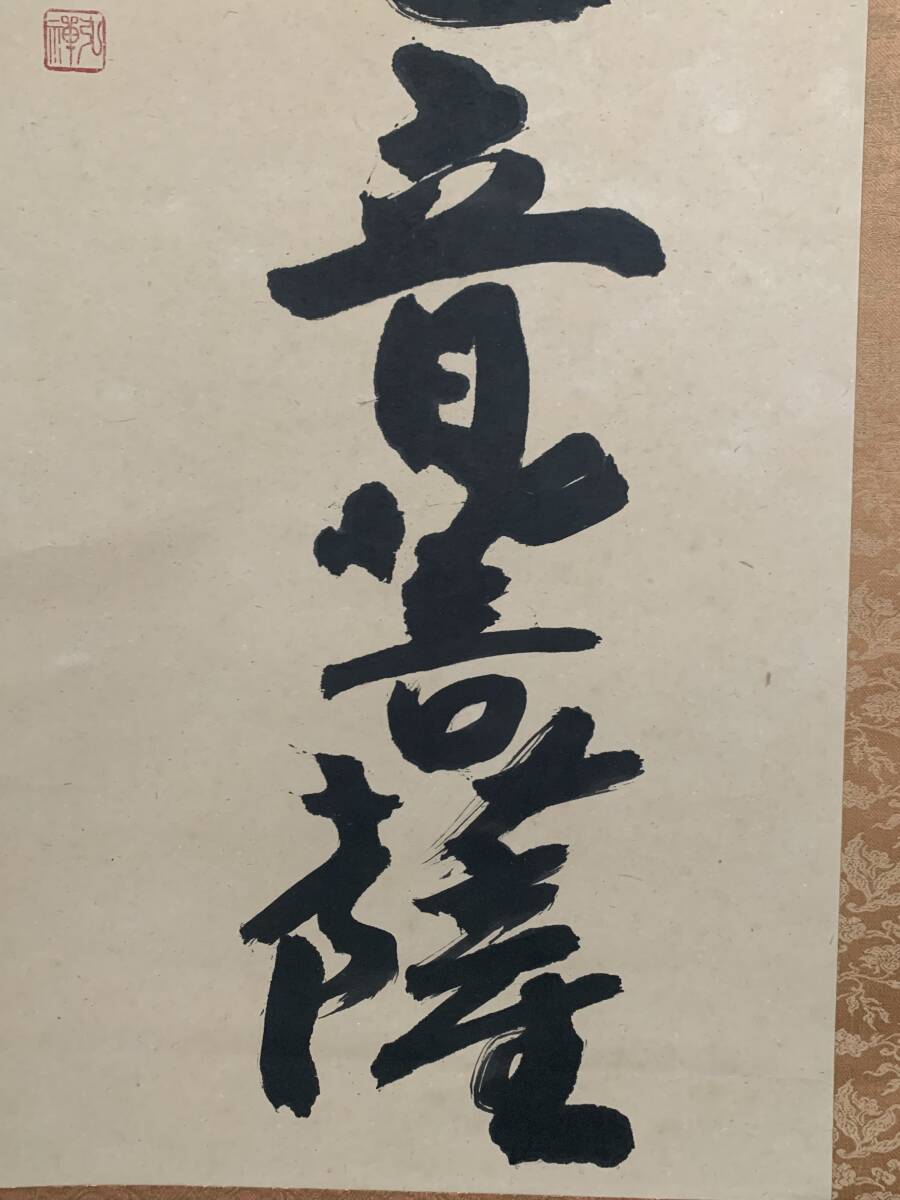 音菩薩